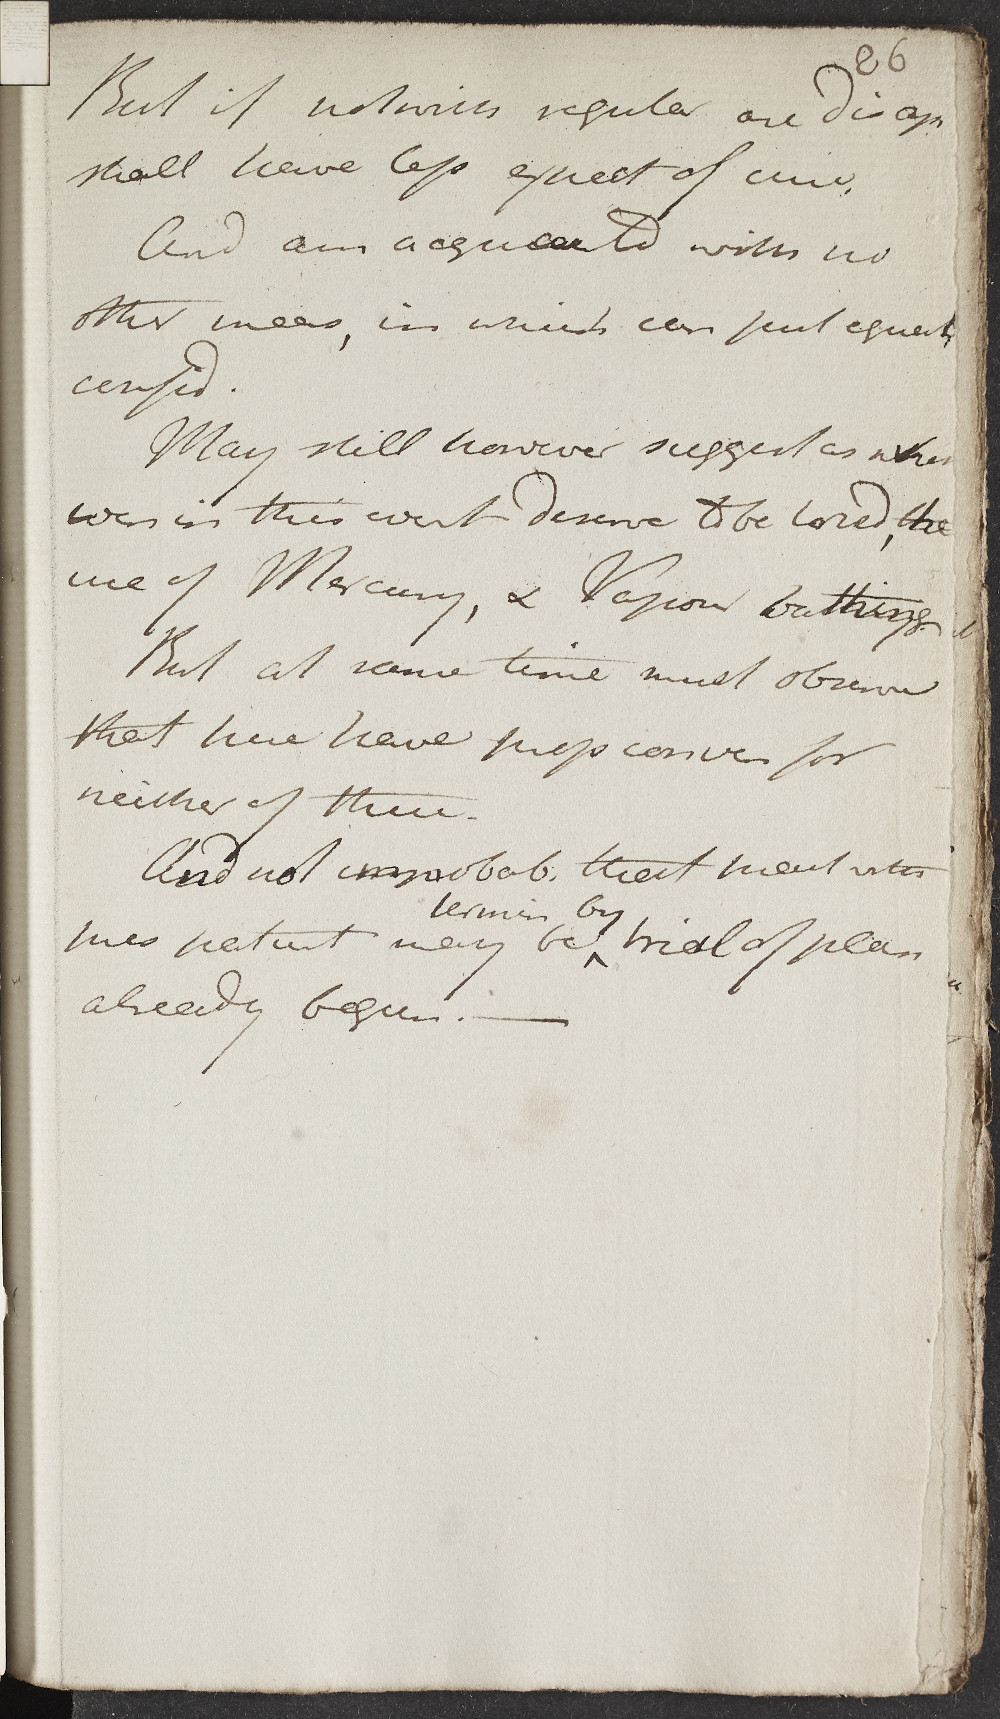 86
But if notwith regular are disap
shall have less expect of cure.
And am acquainted with no
other meas, in which can put equal
confid.
May still however suggest as what
in this event deserve to be tried, the
use of Mercury, & Vapour bathing.
But at same time must observe
that here have conven for
neither of them.
And not improbab. that treat with
pres patient may be
termin by
trial of plan
already begun.